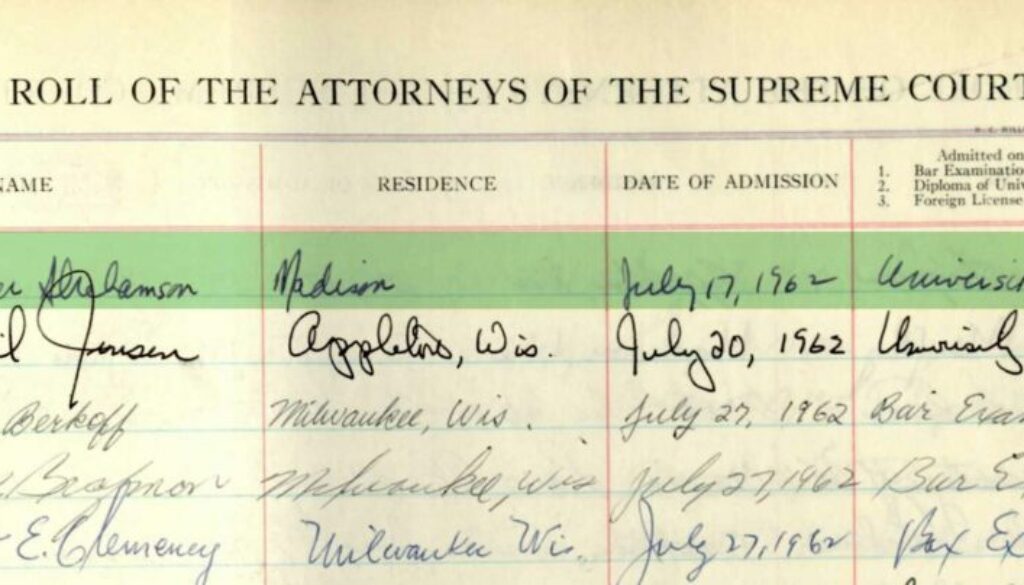 ROLL OF THE ATTORNEYS OF THE SUPREME COURT
NAME RESIDENCE DATE OF ADMISSION Admitted on
1. Bar Examinatio
2. Diploma of Univ
3. Foreign License
er Abrahamson Madison July 17, 1962 Universit
il Jensen Appleton, Wis. July 20, 1962 University
Berkoff Milwaukee, Wis. July 27, 1962 Bar Exam
Milwaukee, Wis July 27, 1962 Bar E
E. Clemency Milwaukee Wis. July 27, 1962 Bar Ex